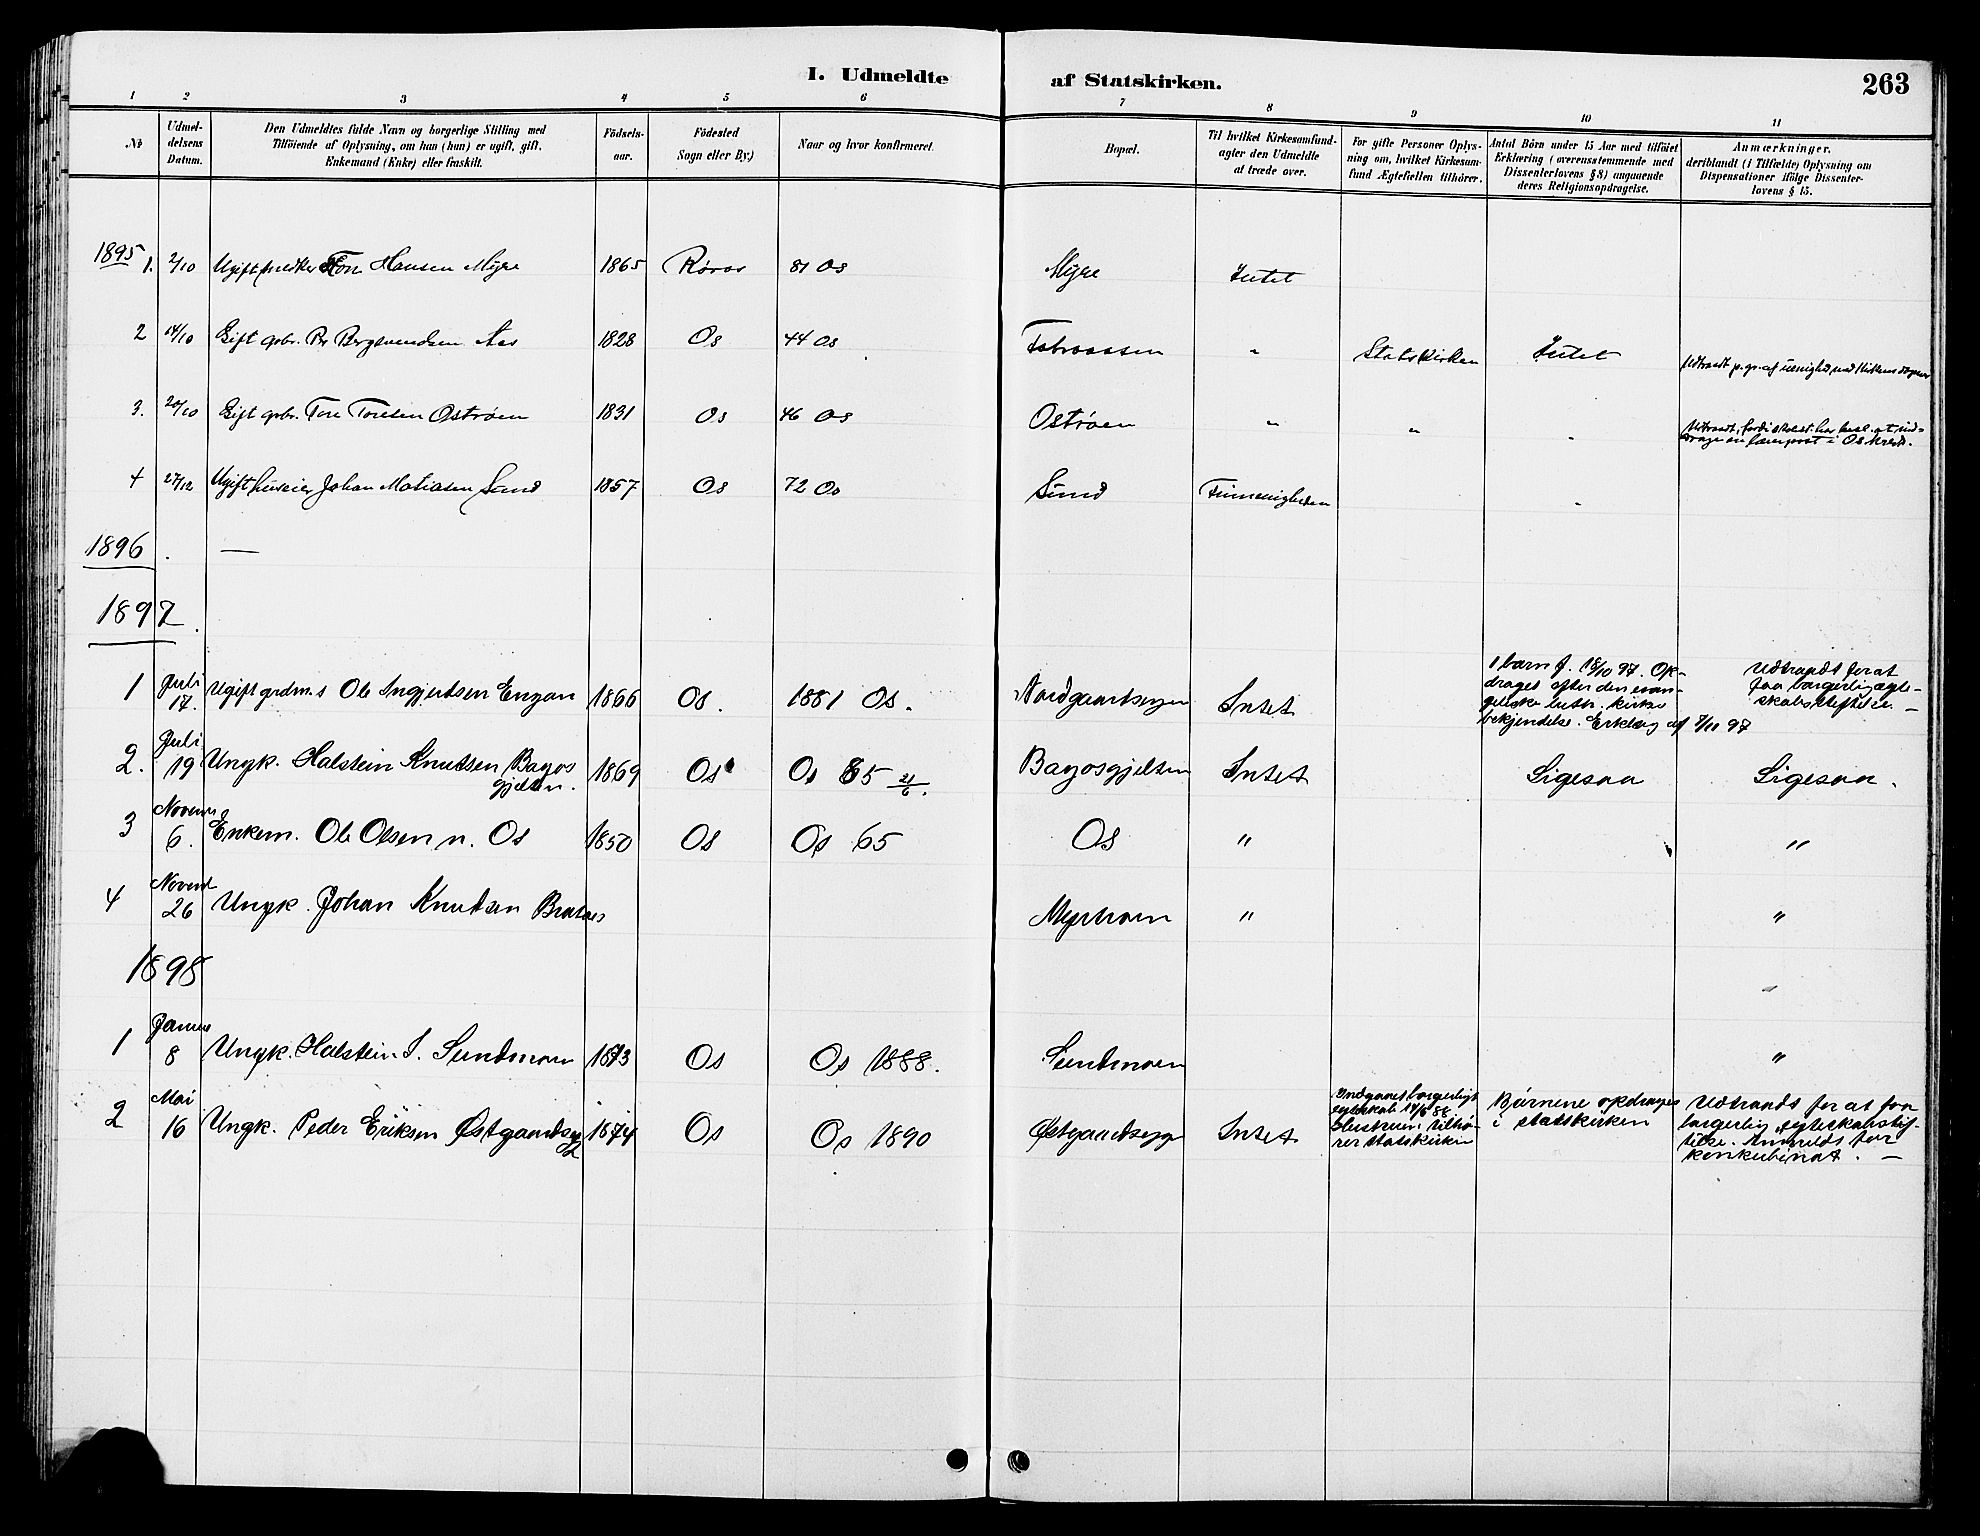 I. Udmeldte af Statskirken. 263
1 2 3 4 5 6 7 8 9 10 11
No
Udmel-
delsens
Datum.
Den Udmeldtes fulde Navn og borgerlige Stilling med
Tilføiende af Oplysning, om han (hun) er ugift, gift,
Enkemand (Enke) eller fraskilt.
Fødsels-
aar.
Fødested
Sogn eller By)
Naar og hvor konfirmeret.
Bopæl.
Til hvilket Kirkesamfund-
agter den Udmeldte
at træde over.
For gifte Personer Oplys-
ning om, hvilket Kirkesam-
fund Ægtefællen tilhører.
Antal Børn under 15 Aar med tilføiet
Erklæring (overensstemmende med
Dissenterlovens § 8) angaaende
deres Religionsopdragelse.
Anmærkninger,
deriblandt (i Tilfælde) Oplysning om
Dispensationer ifølge Dissenter-
lovens § 15.
1895
1. 2/10 Ugift Tore Hansen Myre 1865 Røros 81 Os Myre Intet
2 14/10 Gift gbr. Pr Bergsvendsen Aas 1828 Os 44 Os " Statskirken Intet
Udtraadt p. gr. af uenighed med Kirkens dogmer
3. 20/10 Gift gbr. Tore Toresen Ostrøen 1831 Os 46 Os Ostrøen " " "
Udtraadt, fordi
i Os
4 27/12 Ugift huseier Johan Matiasen Sund 1857 Os 72 Os Sund "
1896 . —
1897.
1 Juli
17. Ugift grdm.s Ole Ingjertsen Engan 1866 Os. 1881 Os. Intet
1 barn f. 18/10 97. Op-
drages efter den evan-
geliske luth. kirkes
bekjendelse. Erklærg af 7/10 97
Udtraadt for at
faa borgerlig ægte-
skabsstiftelse. —
2. Juli
19 Ungk. Halstein Knutsen Bagos
gjelten. 1869 Os Os 85 21/6. Bagosgjelten Intet Ligesaa Ligesaa.
3 Novem
6. Enkem. Ole Olsen n. Os 1850 Os Os 65 Os " "
4 Novem
26 Ungk. Johan Knutsen " "
1898 "
1 Januar
8 Ungk. Halstein J. Sundmoen 1873 Os Os 1888. Sundmoen "
2 Mai
16 Ungk. Peder Eriksen Østgaardsegg 1874 Os Os 1890 Østgaardsegg Intet
Indgaaet borgerligt
egteskab
Hustruen tilhø-
rer statskirken
Børnene opdrages
i statskirken
Udtraadt for at faa
borgerlig egteskabstif-
telse. Anmeldt for
konkubinat. —